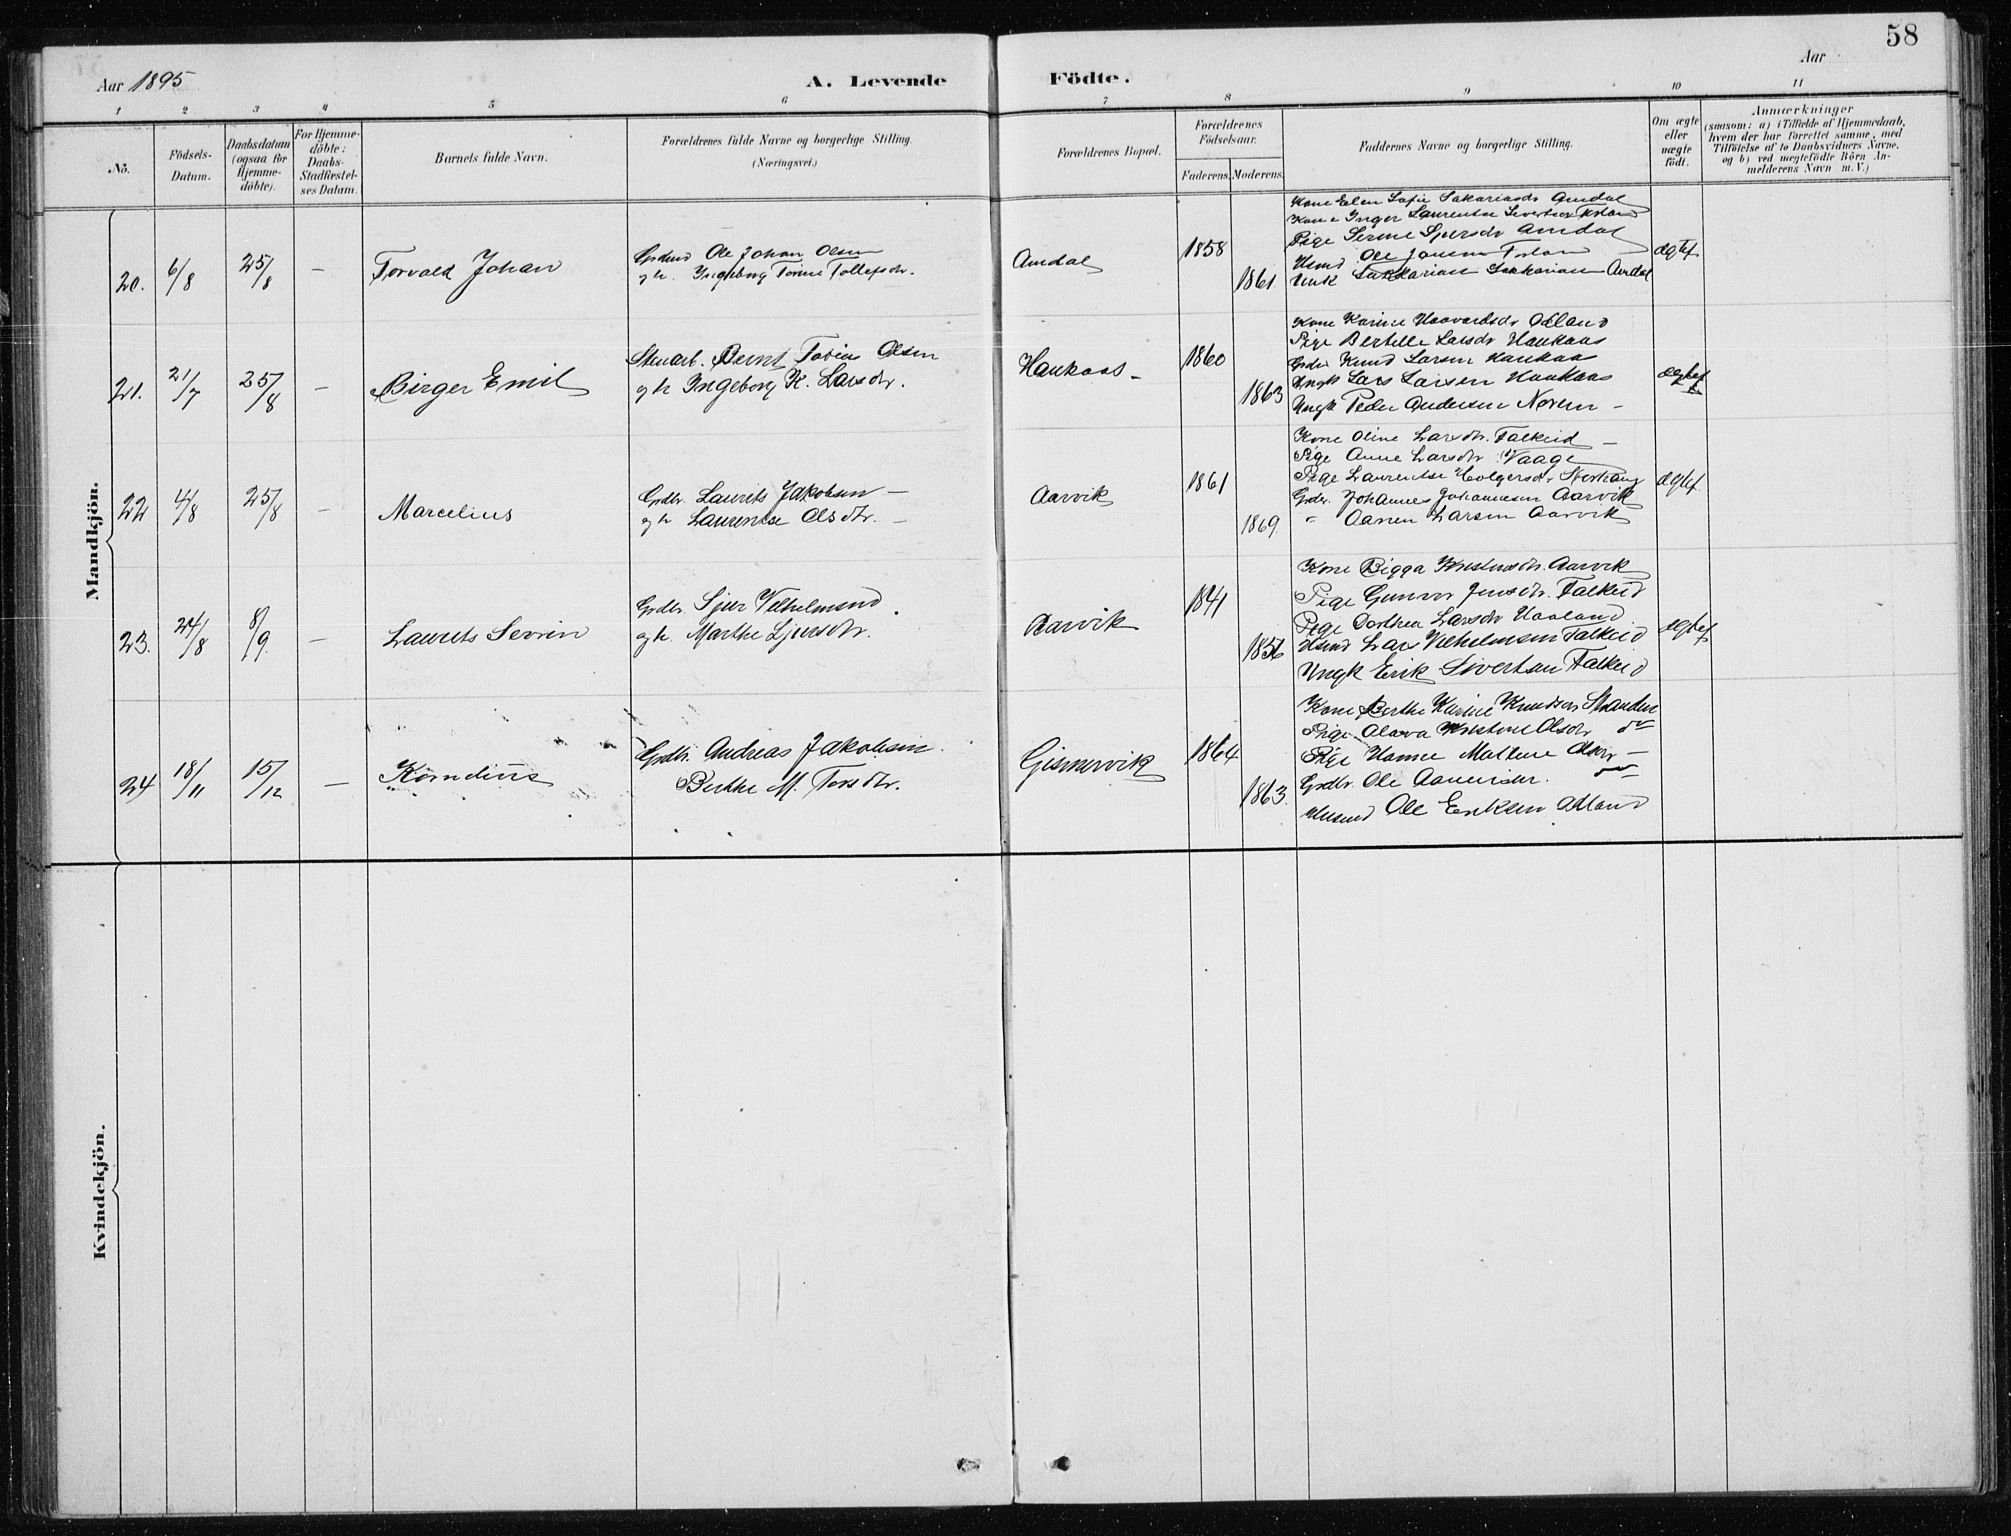 58
Aar 1895
A. Levende
Födte.
Aar
1 2 3 4 5 6 7 8 9 10 11
No.
Födsels-
Datum.
Daabsdatum
(ogsaa for
Hjemme-
döbte).
For Hjemme-
döbte:
Daabs-
Stadfæstel-
ses Datum.
Barnets fulde Navn.
Forældrenes fulde Navne og borgerlige Stilling.
(Næringsvei.)
Forældrenes Bopæl.
Forældrenes
Födselsaar.
Faderens.
Moderens.
Faddernes Navne og borgerlige Stilling.
Om ægte
eller
uægte
födt.
Anmærkninger
(saasom: a) i Tilfælde af Hjemmedaab,
hvem der har forrettet samme, med
Tilföielse af to Daabsvidners Navne,
og b) ved uægtefödte Börn An-
melderens Navn m. V.)
Mandkjön.
20. 6/8 25/8 – Torvald Johan
Ole Johan Olsen
og h. Ingeborg Tomine Tollefsdr.
Amdal
1858
1861
Kone Elen Sofie Sakariasdr Amdal
Kone Inger Laurentse Sivertsdr
Pige Serine Sjursdr Amdal
Husmd Ole Jansen
Ungk Sakkarias Sakarias Amdal
ægtef
21. 21/7 25/8 – Birger Emil
Stenarb. Bernt Tobias Olsen
og h. Ingeborg K. Larsdr.
Haukaas –
1860
1863
Kone Karine Haavardsdr Odland
Pige Bertille Larsdr Haukaas
Grdbr Knud Larsen Haukaas
Ungk Lars Larsen Haukaas
Ungk Peder Andersen Norem –
ægtef
22 4/8 25/8 – Marcelius
Grdbr. Laurits Jakobsen –
og h. Laurentse Olsdtr. –
Aarvik
1861
1869.
Kone Oline Larsdtr. Falkeid –
Pige Anne Larsdtr Vaage
Pige Laurentse Holgersdr
Grdbr. Johannes Johannesen Aarvik
" Aanen Larsen Aarvik
ægtef.
23. 24/8 8/9. – Laurits Severin
Grdbr. Sjur Vilhelmsen
og h. Marthe Sjursdtr.
Aarvik
1841
1856
Kone Bigga Kristensdr. Aarvik
Pige Gunvor Jensdr. Falkeid
Pige Dorthea Larsdr Haaland
Husmd Lars Vilhelmsen Falkeid
Ungk Erik Sivertsen Falkeid
ægtef
24 18/11 15/12 – Kornelius
Grdbr. Andreas Jakobsen.
Berthe M. Torsdtr.
Gismervik
1864
1863.
Kone Berthe Karine Knudsdr
Pige Olava Kristine Olsdr do
Pige Hanne Mathea Olsdr –
Grdbr. Ole
Husmd Ole Eriksen Odland
Kvindekjön.